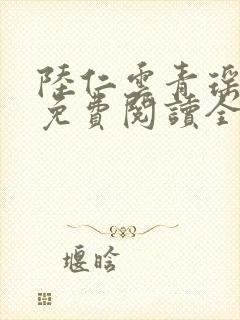 陸仁雲青瑤
免費閱讀全
堰晗